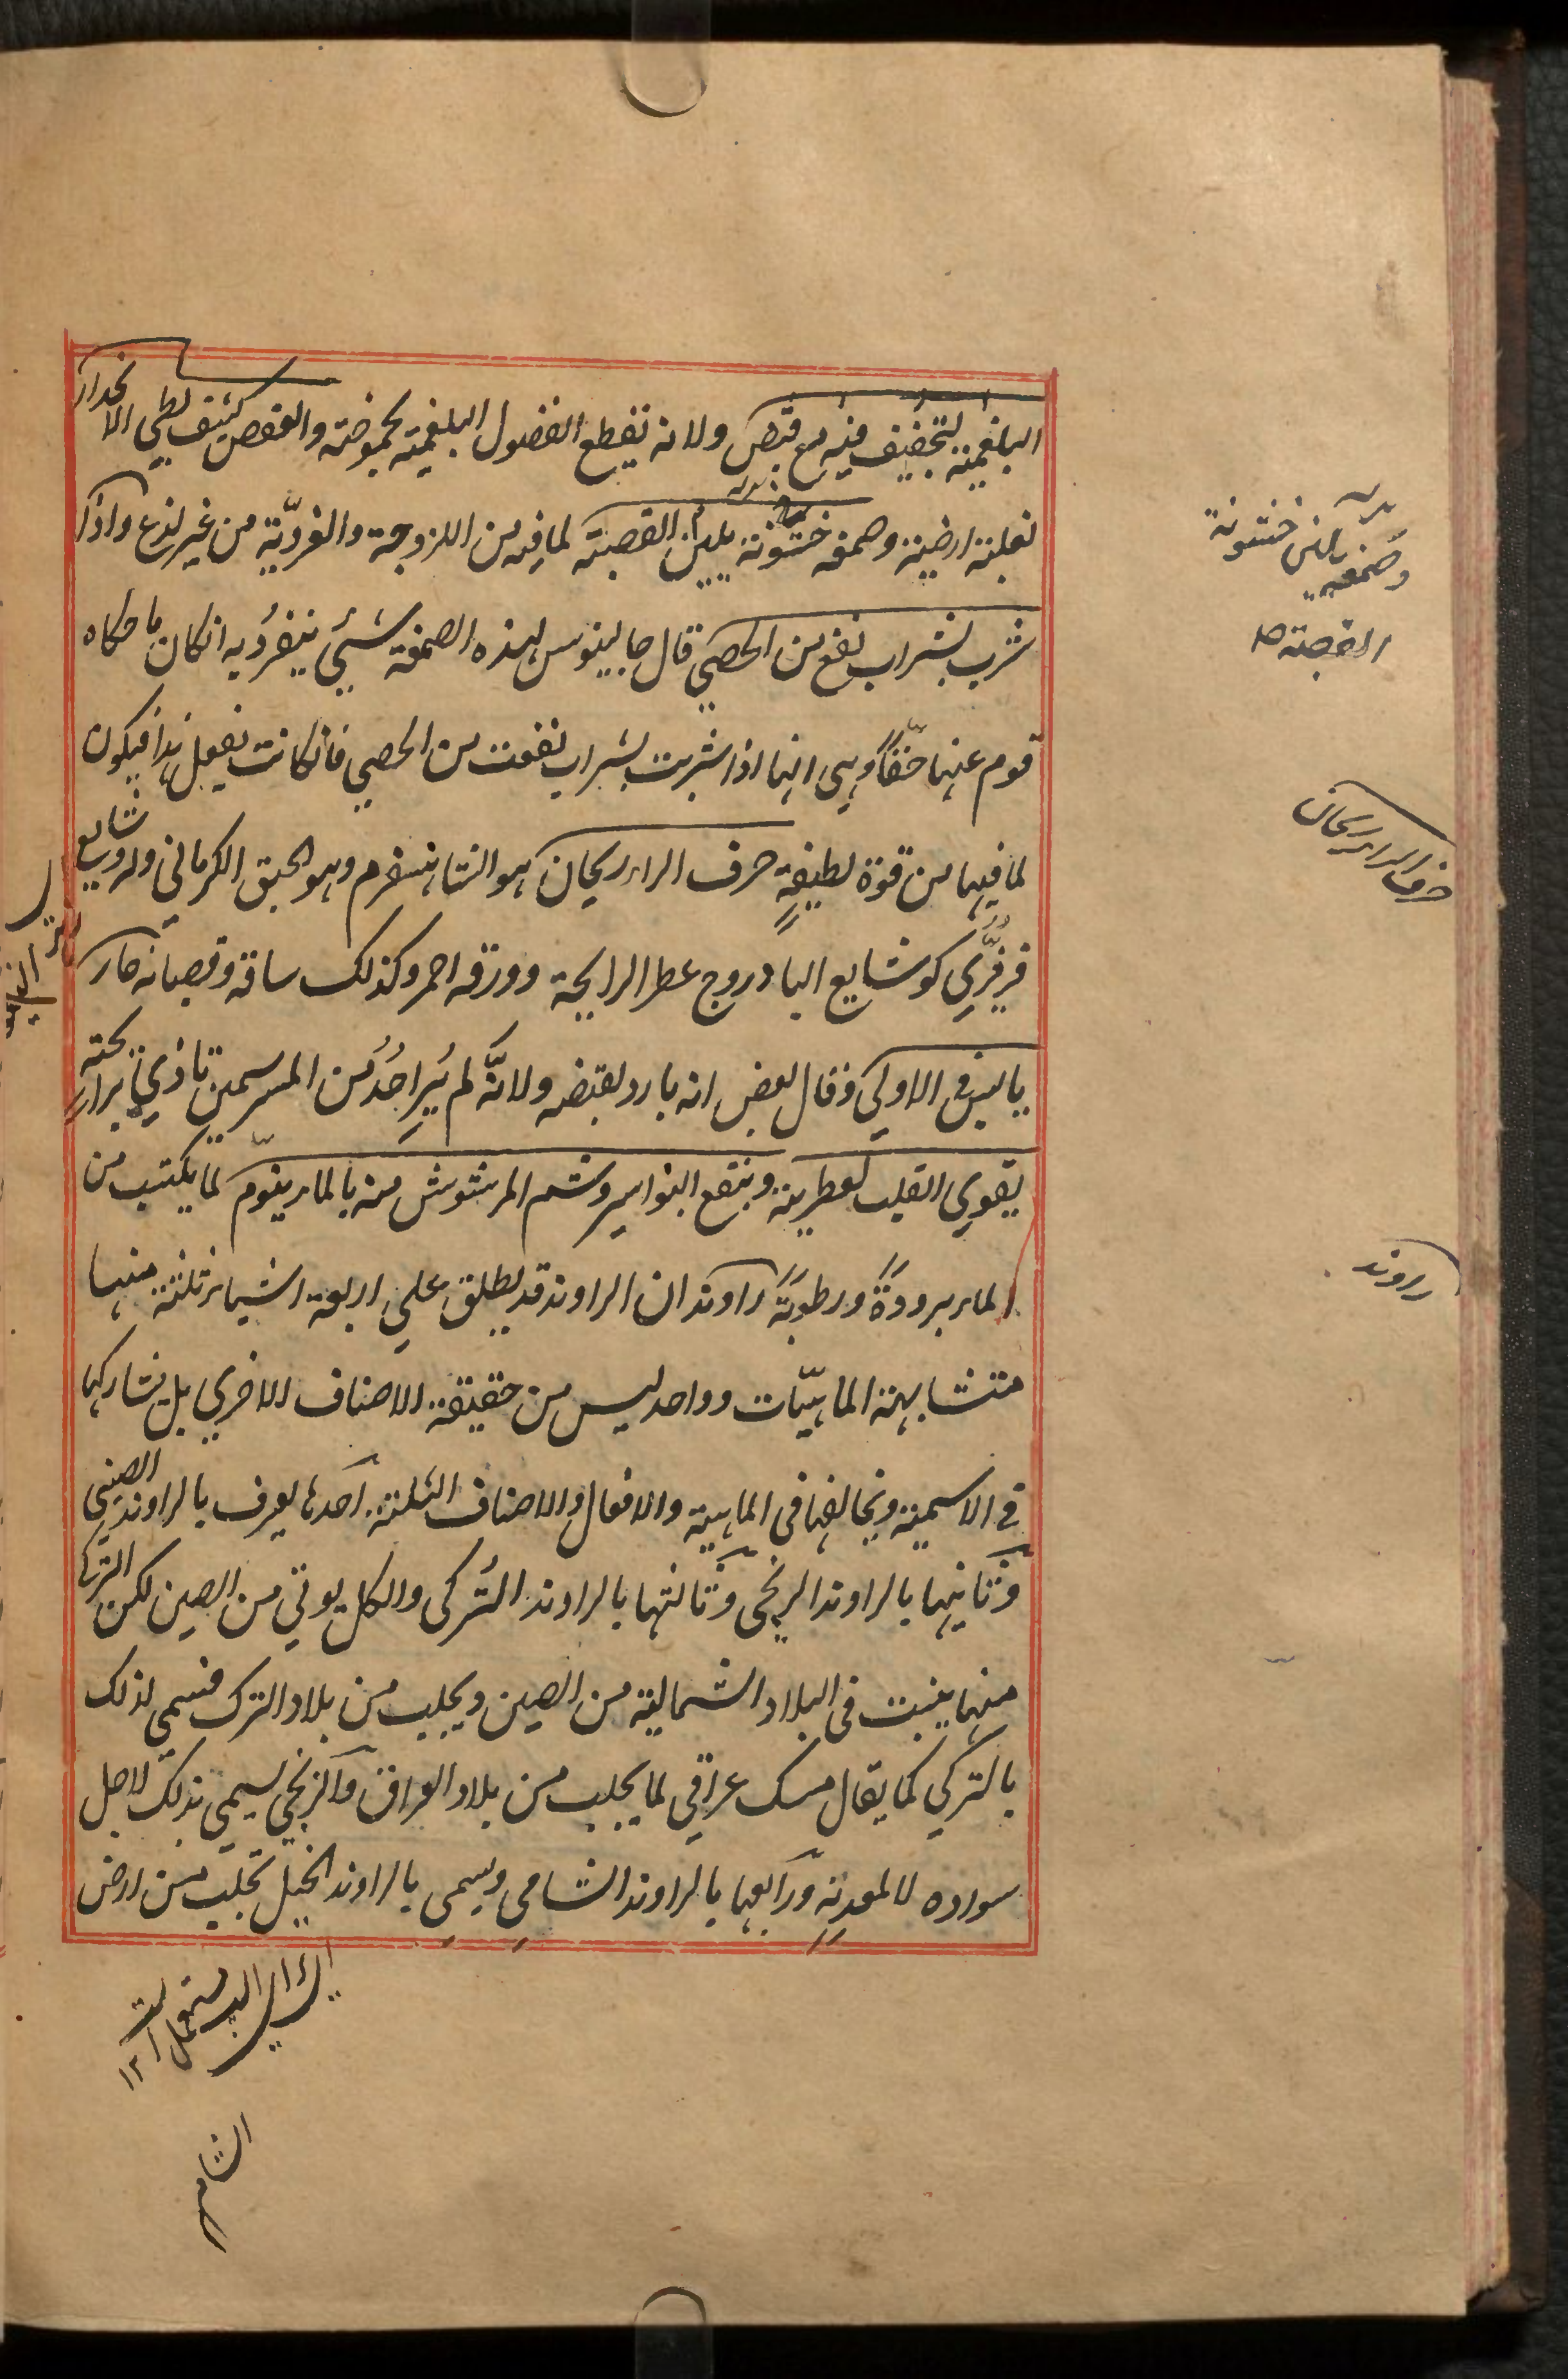 البلغمية لتجفيف فيه مع قبض ولانه يقطع الفضول البلغمية بحموضته والعفص كثيف بطي الانحدار
لغلبة ارضية وصمغه خشونة يلين القصبة لما فيه من اللزوجة والغروّية من غير لذع واذا
شرب بشراب نفع من الحصي قال جالينوس لهذه الصمغة شيئ ينفرد به انكان ما حكاه
قوم عنها حقّاً وهي انها اذا شربت بشراب نفعت من الحصي فانكانت تفعل هذا فيكون
لما فيها من قوة لطيفةٍ حرف الراء ريحان هو الشاهسفرم وهو الحبق الكرماني وله وشايع
فرفّري كوشايع البادروج عطر الرايحة وورقه احمر وكذلك ساقه وقصبانه حار
يابس في الاولي وقال بعض انه بارد لقبضه ولانّه لم يُرِ احدُ من المسرسمين تاذي برايحته
يقوي القلب لعطريته وينفع البواسير وشم المرشوش منه بالماء ينوّم لما يكتسب من
الماء برودةً ورطوبةً راوند ان الراوند قد يطلق علي اربعة اشياء ثلثة منها
متشابهة الماهيّات وواحد ليس من حقيقة الاصناف الاخري بل يشاركها
في الاسمية ويخالفها في الماهية والافعال والاصناف الثلثة احدها يعرف بالراوند الصيني
وثانيها بالراوند الزنجي وثالثها بالراوند التُركي والكل يوتي من الصين لكن التركي
منها ينبت في البلاد الشمالية من الصين ويجلب من بلاد الترك فسمي لذلك
بالتركي كما يقال مسك عراقي لما يجلب من بلاد العراق والزنجي يسمي بذلك لاجل
سواده لا لمعدنه ورابعها بالراوند الشامي ويسمي بالراوند الخيل تجلب من ارض
وصمغه يلين خشونة
القصبة ص
حرف الراء ريحان
راوند
الشام